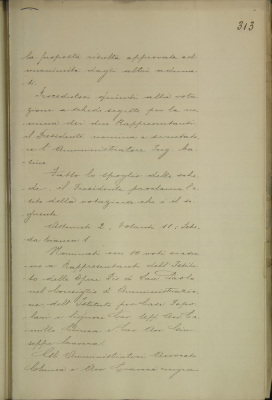 313
la proposta risulta approvata ad
unanimità dagli altri aduna-
ti.
Procedutosi quindi alla vota-
zione a schede segrete per la no-
mina dei due Rappresentanti
il Presidente nomina a scrutato-
re l'Amministratore Ing.
Fatto lo spoglio delle sche-
de, il Presidente proclama l'e-
sito della votazione che è il se-
guente
Votanti 11. Sche-
da bianca 1.
Nominati con 10 voti
a Rappresentanti dell'Istitu-
to delle Opere Pie di San Paolo
nel Consiglio di Amministrazio-
ne dell'Istituto per Case Popo-
lari i Signori Cav. Uff. Avv. Ca-
millo e Cav. Avv. Giu-
seppe
Gli Amministratori
Colonna e Avv.